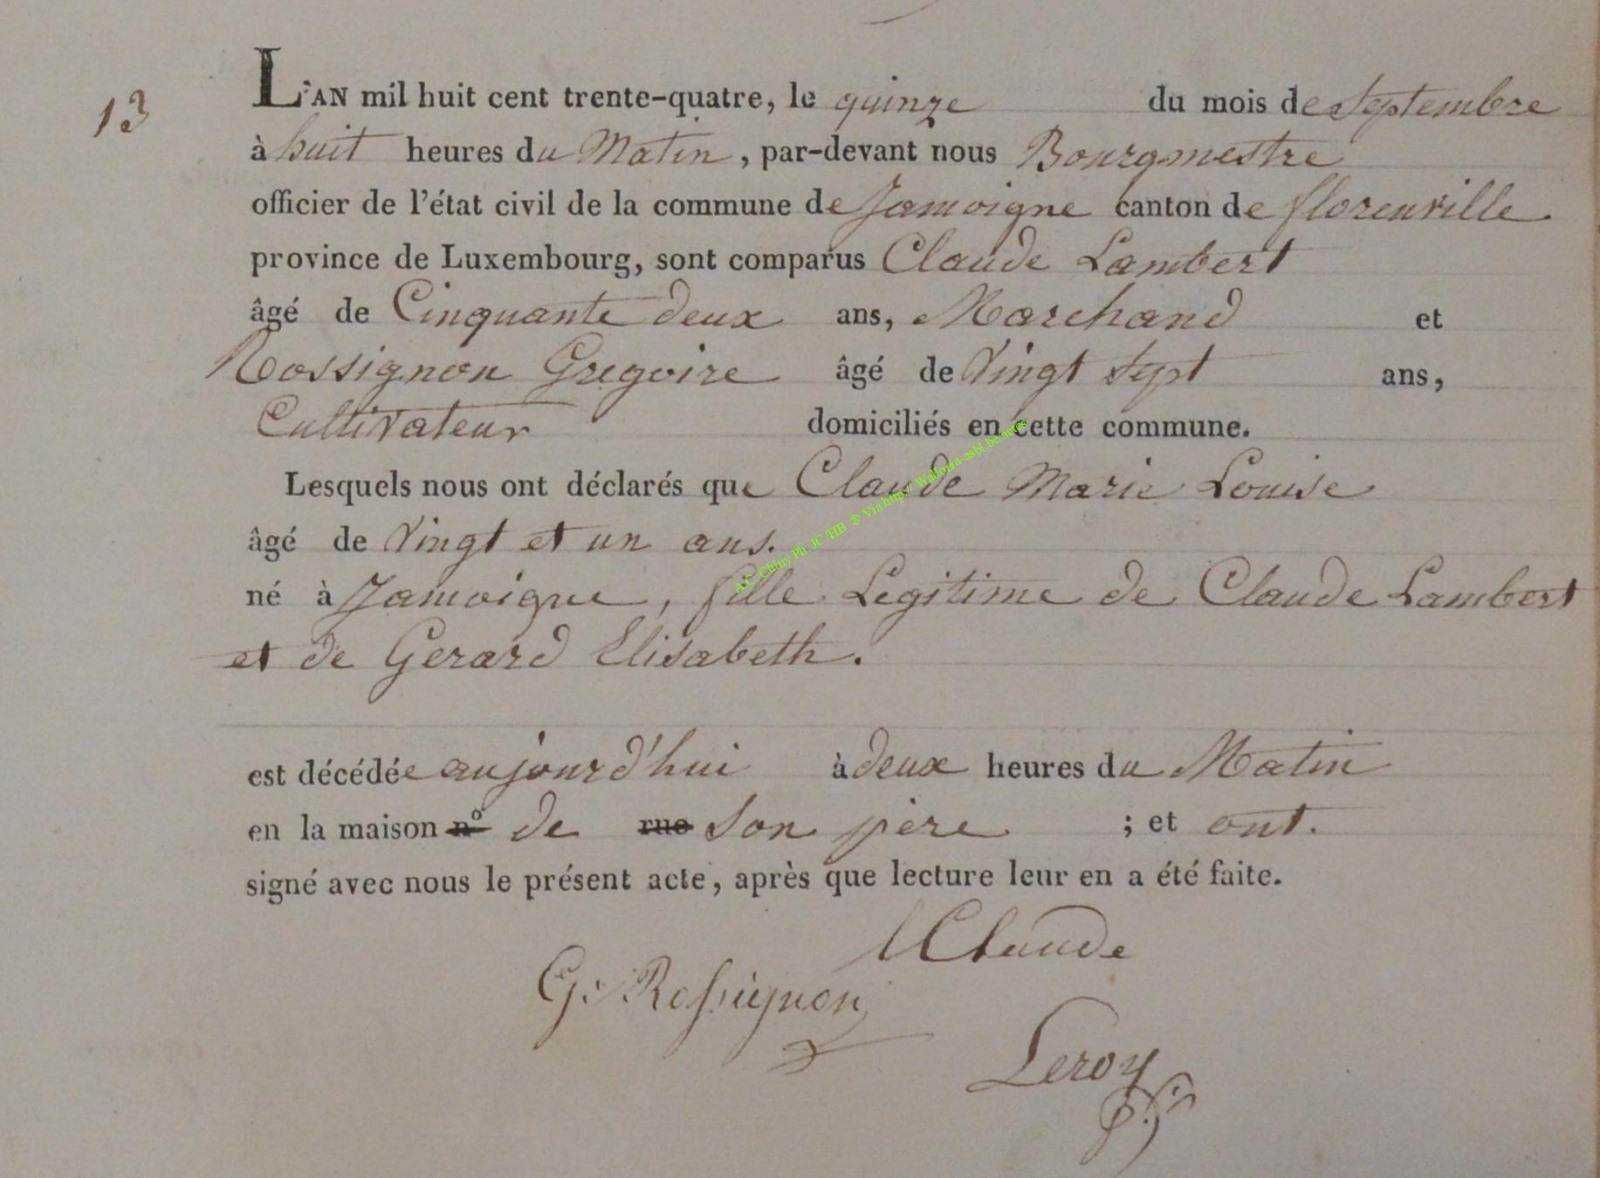 13
L'AN mil huit cent trente-quatre, le quinze du mois de Septembre
à huit heures du Matin, par-devant nous Bourgmestre
officier de l'état civil de la commune de Jamoigne canton de florenville
province de Luxembourg, sont comparus Claude Lambert
âgé de Cinquante deux ans, Marchand et
Rossignon Gregoire âgé de Vingt Sept ans,
Cultivateur domiciliés en cette commune.
Lesquels nous ont déclarés que Claude Marie Louise
âgé de Vingt et un ans.
né à Jamoigne, fille Legitime de Claude Lambert
et de Gerard Elisabeth.
est décédée aujourd'hui à deux heures du Matin
en la maison n° de rue Son père ; et ont.
signé avec nous le présent acte, après que lecture leur en a été faite.
LClaude
G. Rossignon
Leroy